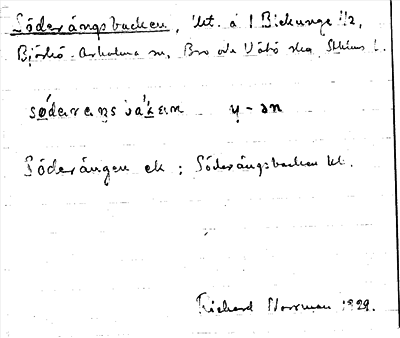 Söderängsbacken, 'lht. å 1 Björkunge 1/2,
Björkö-Arholma sn, Bro och Vätö skg, Sthlms l.
y-ən
Söderängen ek ; Söderängsbacken ht.
Richard Norrman 1929.